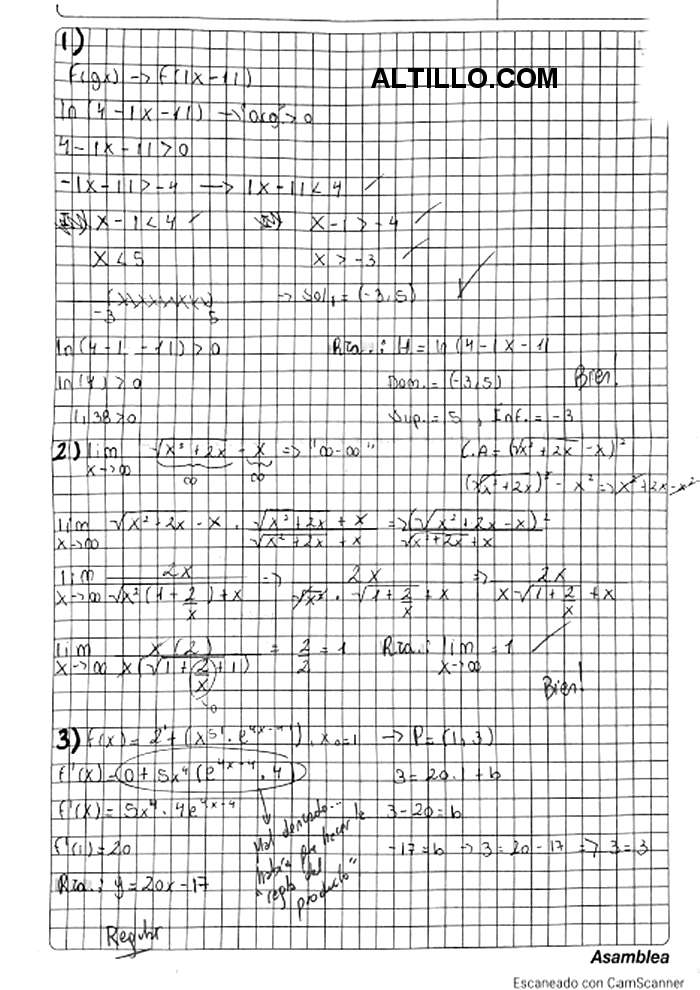 1)
f(gx) → f(|x-1|)
ALTILLO.COM
ln (4-|x-1|) → "arg" > 0
4-|x-1| > 0
-|x-1| > -4 → |x-1| < 4
x-1 < 4 x-1 > -4
x < 5 x > -3
-3 5 → Sol. = (-3, 5)
ln (4-| -1|) > 0 Rta.: H = ln (4-|x-1|
ln (4) > 0 Dom. = (-3, 5) Bien!
1,38 > 0 Sup. = 5 , Inf. = -3
2) lim x→∞ √x²+2x - x => "∞-∞" C.A = (√x²+2x - x)²
∞ ∞ (√x²+2x)² - x² => x²+2x-x²
lim x→∞ √x²+2x - x . √x²+2x + x / √x²+2x + x => (√x²+2x - x)² / √x²+2x + x
lim x→∞ 2x / √x²(1+2/x) + x => 2x / √x² . √1+2/x + x => 2x / x √1+2/x + x
lim x→∞ x(2) / x(√1+2/x +1) = 2/2 = 1 Rta.: lim x→∞ = 1
→0 Bien!
3) f(x) = 2 + (x⁵ . e⁴ˣ⁻⁴), x₀=1 → P = (1, 3)
f'(x) = 0 + 5x⁴ (e⁴ˣ⁻⁴ . 4) 3 = 20.1 + b
f'(x) = 5x⁴ . 4e⁴ˣ⁻⁴ 3-20 = b
f'(1) = 20 -17 = b → 3 = 20 - 17 => 3 = 3
Rta.: y = 20x - 17
Mal derivado...
había que hacerle
"regla del
producto"
Regular
Asamblea
Escaneado con CamScanner